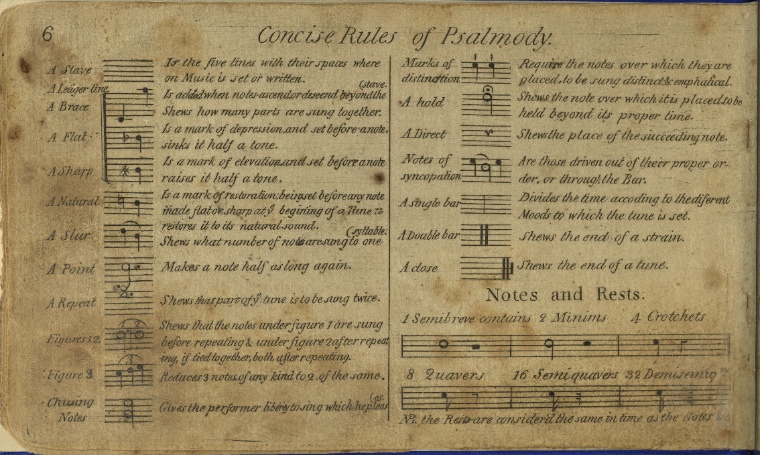 6
Concise Rules of Psalmody.
A Stave
Is the five lines with their spaces where
on Music is set or written.
A Leager line
Is added when notes ascend or descend beyond the
(Stave.
A Brace
Shews how many parts are sung together.
A Flat
Is a mark of depression and set before a note
sinks it half a tone.
A Sharp
Is a mark of elevation and set before a note
raises it half a tone.
A Natural
Is a mark of restoration; being set before any note
made flat or sharp at ye begining of a Tune
restores it to its natural sound.
A Slur
Shews what number of notes are sung to one
(syllable.
A Point
Makes a note half as long again.
A Repeat
Shews that part of ye tune is to be sung twice.
Figures 1 2
Shews that the notes under figure 1 are sung
before repeating & under figure 2 after repeat
ing, if tied together, both after repeating.
Figure 3
Reduces 3 notes of any kind to 2 of the same.
Chusing
Notes
Gives the performer liberty to sing which he pleas
(es.
Marks of
distinction
Require the notes over which they are
placed, to be sung distinct & emphatical.
A hold
Shews the note over which it is placed to be
held beyond its proper time.
A Direct
Shews the place of the succeeding note.
Notes of
syncopation
Are those driven out of their proper or-
der, or through the Bar.
A single bar
Divides the time accoding to the diferent
Moods to which the tune is set.
A Double bar
Shews the end of a strain.
A close
Shews the end of a tune.
Notes and Rests.
1 Semibreve contains 2 Minims 4 Crotchets
8 Quavers 16 Semiquavers 32 Demisemiq
the Rests are consider'd the same in time as the Notes